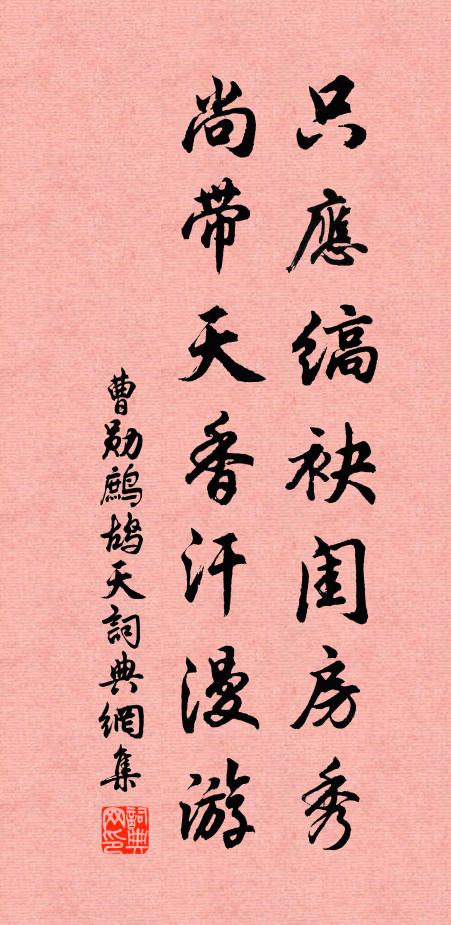 只應縞袂閨房秀
尚带天香汗漫游
曹勛鷓鴣天詞典網集
詞典网印